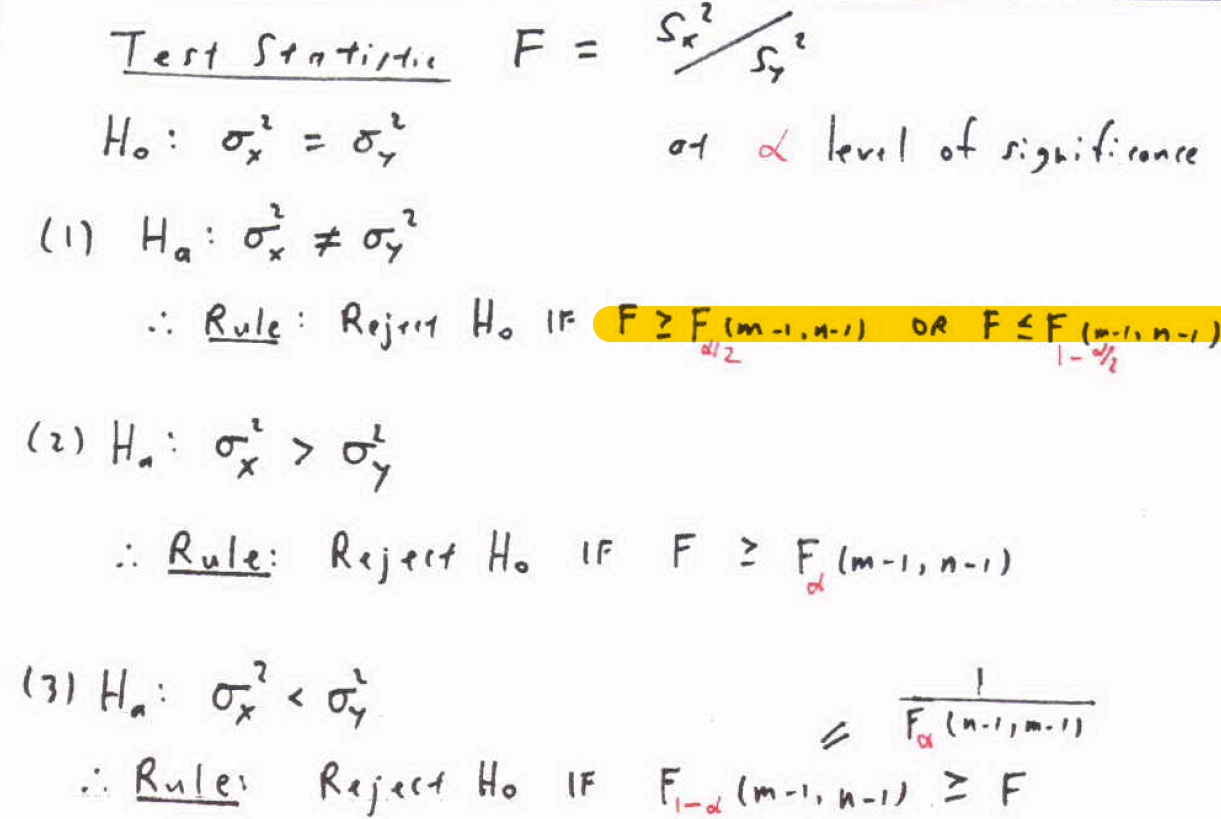 Test Statistic F = Sx²/Sy²
H₀: σx² = σy² at α level of significance
(1) Ha: σx² ≠ σy²
∴ Rule: Reject H₀ IF F ≥ F α/2 (m-1, n-1) OR F ≤ F 1-α/2 (m-1, n-1)
(2) Ha: σx² > σy²
∴ Rule: Reject H₀ IF F ≥ Fα (m-1, n-1)
(3) Ha: σx² < σy²
= 1/Fα (n-1, m-1)
∴ Rule: Reject H₀ IF F1-α (m-1, n-1) ≥ F